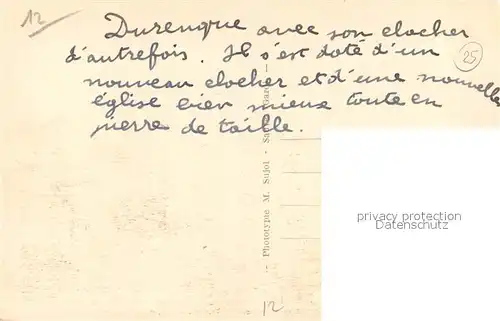 12
Durenque avec son clocher
d'autrefois. Il s'est doté d'un
nouveau clocher et d'une nouvelle
église bien mieux toute en
pierre de taille.
25
Phototypie M. Sujol -
privacy protection
Datenschutz
12